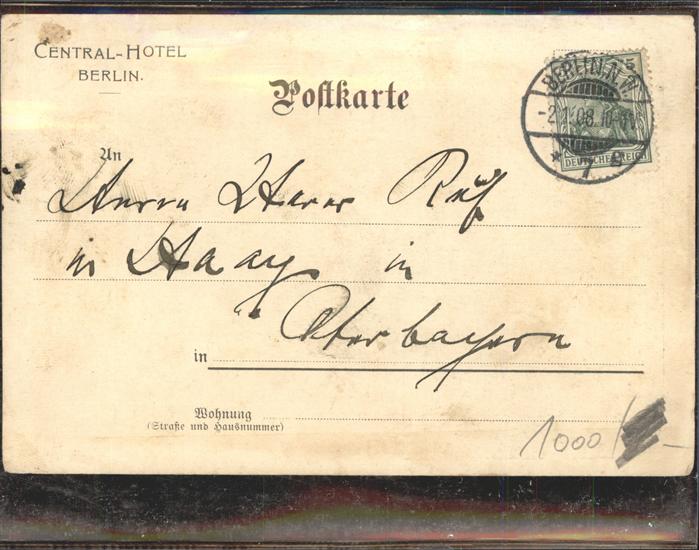 CENTRAL-HOTEL
BERLIN.
Postkarte
5
BERLIN. N.W.
08.10-11
* 7 e
DEUTSCHES REICH
An
Herrn Xaver Ruf
in Haag in
Oberbayern
in
Wohnung
(Straße und Hausnummer)
1000